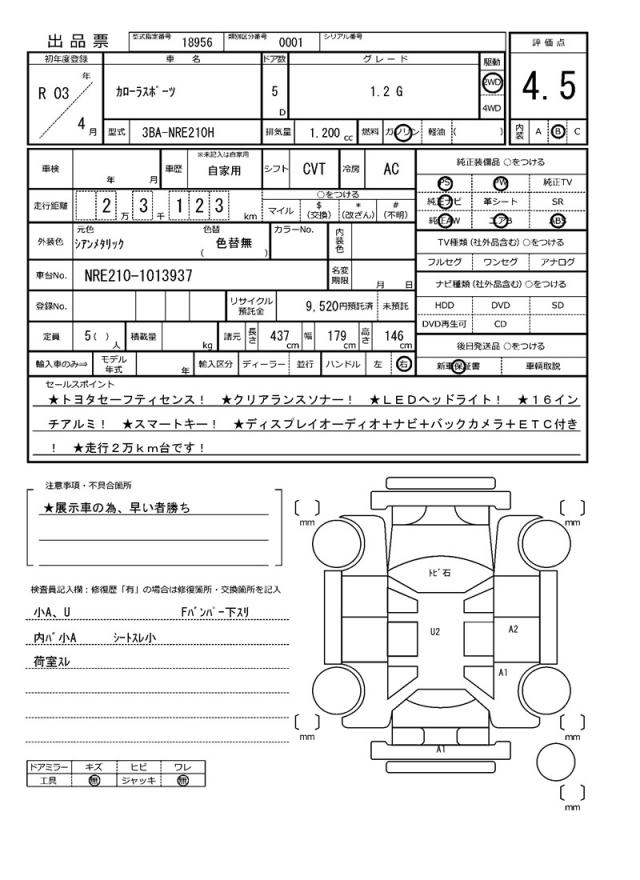 出品票 型式指定番号 18956 類別区分番号 0001 シリアル番号
初年度登録 車名 ドア数 グレード 駆動 評価点
R 03 年 4 月 カローラスポーツ 5 D 1.2 G 2WD 4WD 4.5
型式 3BA-NRE210H 排気量 1.200 cc 燃料 ガソリン 軽油 ( ) 内装 A B C
車検 年 月 車歴 ※未記入は自家用 自家用 シフト CVT 冷房 AC 純正装備品 ○をつける
PS PW 純正TV
走行距離 2 万 3 千 1 2 3 km ○をつける 純正ナビ 革シート SR
マイル $ (交換) * (改ざん) # (不明) 純正AW エアB ABS
外装色 元色 シアンメタリック 色替 ( 色替無 ) カラーNo. 内装色 TV種類 (社外品含む) ○をつける
フルセグ ワンセグ アナログ
車台No. NRE210-1013937 名変期限 月 日 ナビ種類 (社外品含む) ○をつける
登録No. リサイクル預託金 9,520円預託済 未預託 HDD DVD SD
DVD再生可 CD
定員 5( ) 人 積載量 kg 諸元 長さ 437 cm 幅 179 cm 高さ 146 cm 後日発送品 ○をつける
輸入車のみ⇒ モデル年式 年 輸入区分 ディーラー 並行 ハンドル 左 右 新車保証書 車輌取説
セールスポイント
★トヨタセーフティセンス! ★クリアランスソナー! ★LEDヘッドライト! ★16イン
チアルミ! ★スマートキー! ★ディスプレイオーディオ+ナビ+バックカメラ+ETC付き
! ★走行2万km台です!
注意事項・不具合箇所
★展示車の為、早い者勝ち
検査員記入欄:修復歴「有」の場合は修復箇所・交換箇所を記入
小A、U Fバンパー下スリ
内バ小A シートスレ小
荷室スレ
ドアミラー キズ ヒビ ワレ
工具 無 ジャッキ 無
[ ] mm [ ] mm
トビ石
U2 A2
A1
[ ] mm [ ] mm
A1
[ ] mm